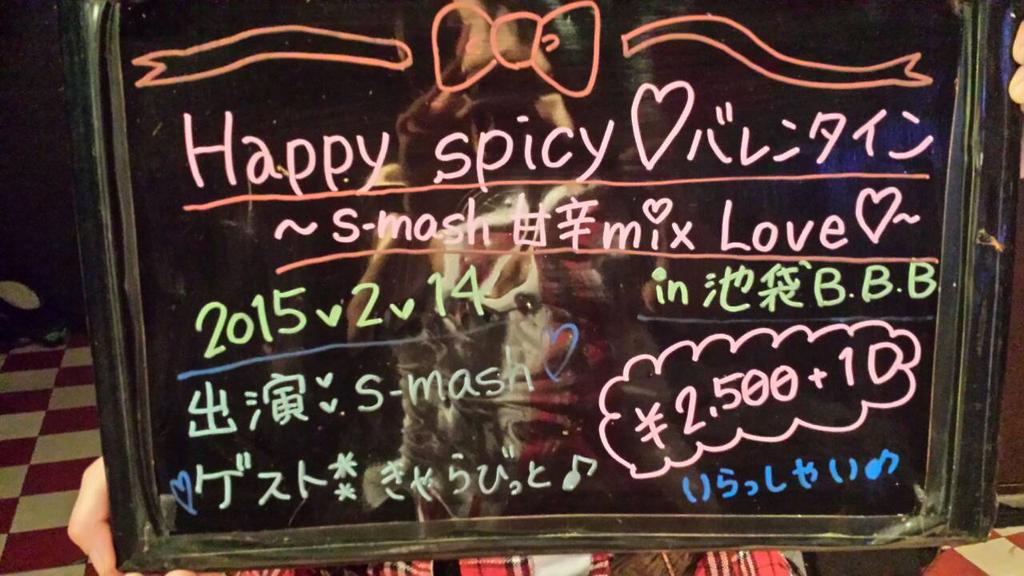 Happy spicy♡バレンタイン
～s-mash 甘辛mix Love♡～
2015♥2♥14 in 池袋B.B.B
出演：s-mash♡
¥2,500+1D
♡ゲスト：きゃらびっと♪
いらっしゃい♪